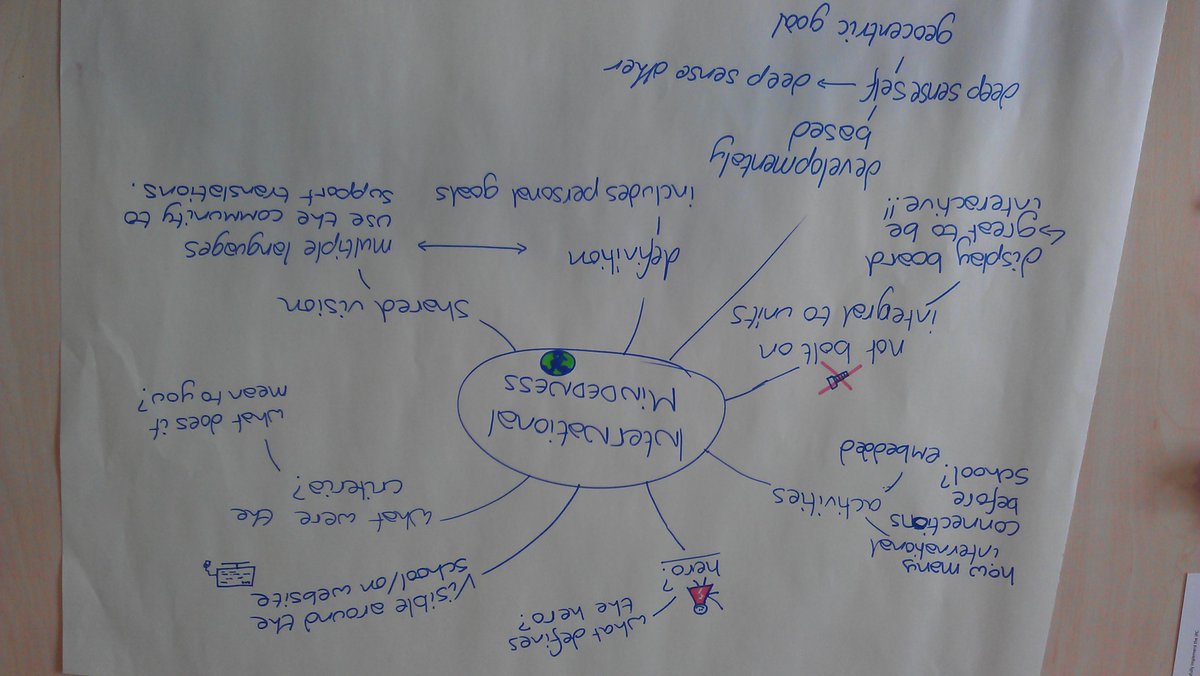 International
Mindedness
hero?
what defines
the hero?
how many
international
connections
before
school?
activities
embedded
not bolt on
integral to units
display board
↳ great to be
interactive!!
developmentaly
based
deep sense self → deep sense other
geocentric goal
definition
includes personal goals
shared vision
multiple languages
use the community to
support translations.
what were the
criteria?
what does it
mean to you?
Visible around the
school/on website